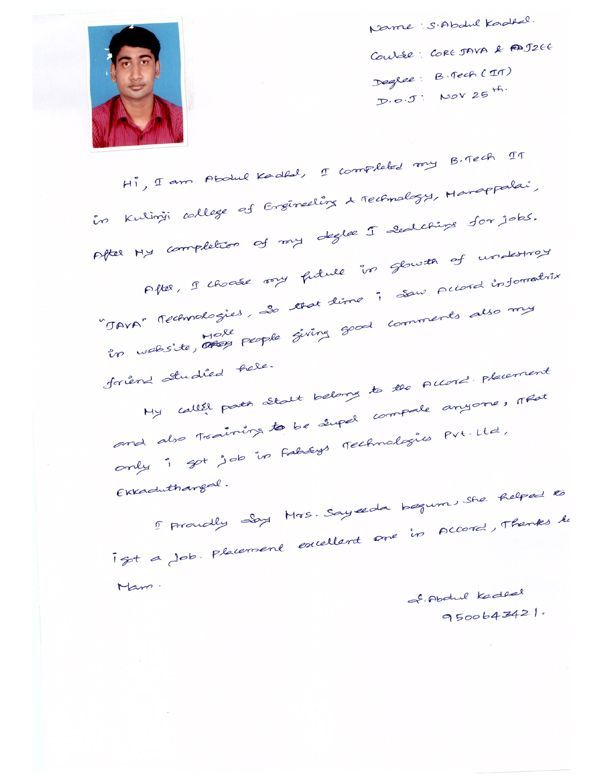 Name : S. Abdul Kadhal.
Course : CORE JAVA & J2EE
Degree : B.Tech (IT)
D.O.J : Nov 25th.
Hi, I am Abdul Kadhal, I completed my B.Tech IT
in Kulinji college of Engineering & Technology, Manappalai,
After My completion of my degree I searching for jobs.
After, I choose my future in growth of undestroy
"JAVA" Technologies, so that time i saw Accord informatrix
in website, More people giving good comments also my
friend studied here.
My path start belong to the Accord. placement
and also Training to be super compare anyone, that
only i got job in Technologies Pvt. Ltd,
Ekkaduthangal.
I Proudly say Mrs. Sayeeda begum, she helped to
i got a job. placement excellent one in Accord, Thanks to
Mam.
S. Abdul Kadhal
9500643421.